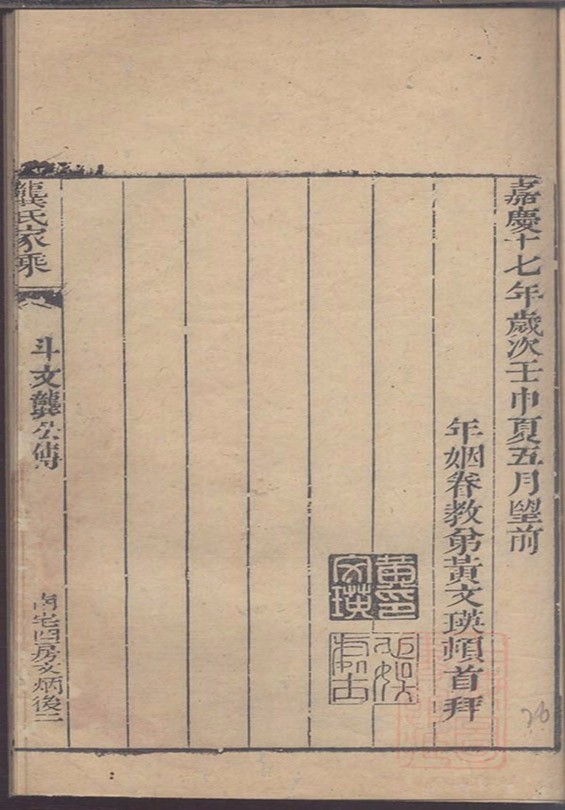 嘉慶十七年歲次壬申夏五月朢前
年姻眷教弟黃文瑛頓首拜
黃印文瑛
龔氏家乘
斗文龔公傳
南宅四房文炳後二
26